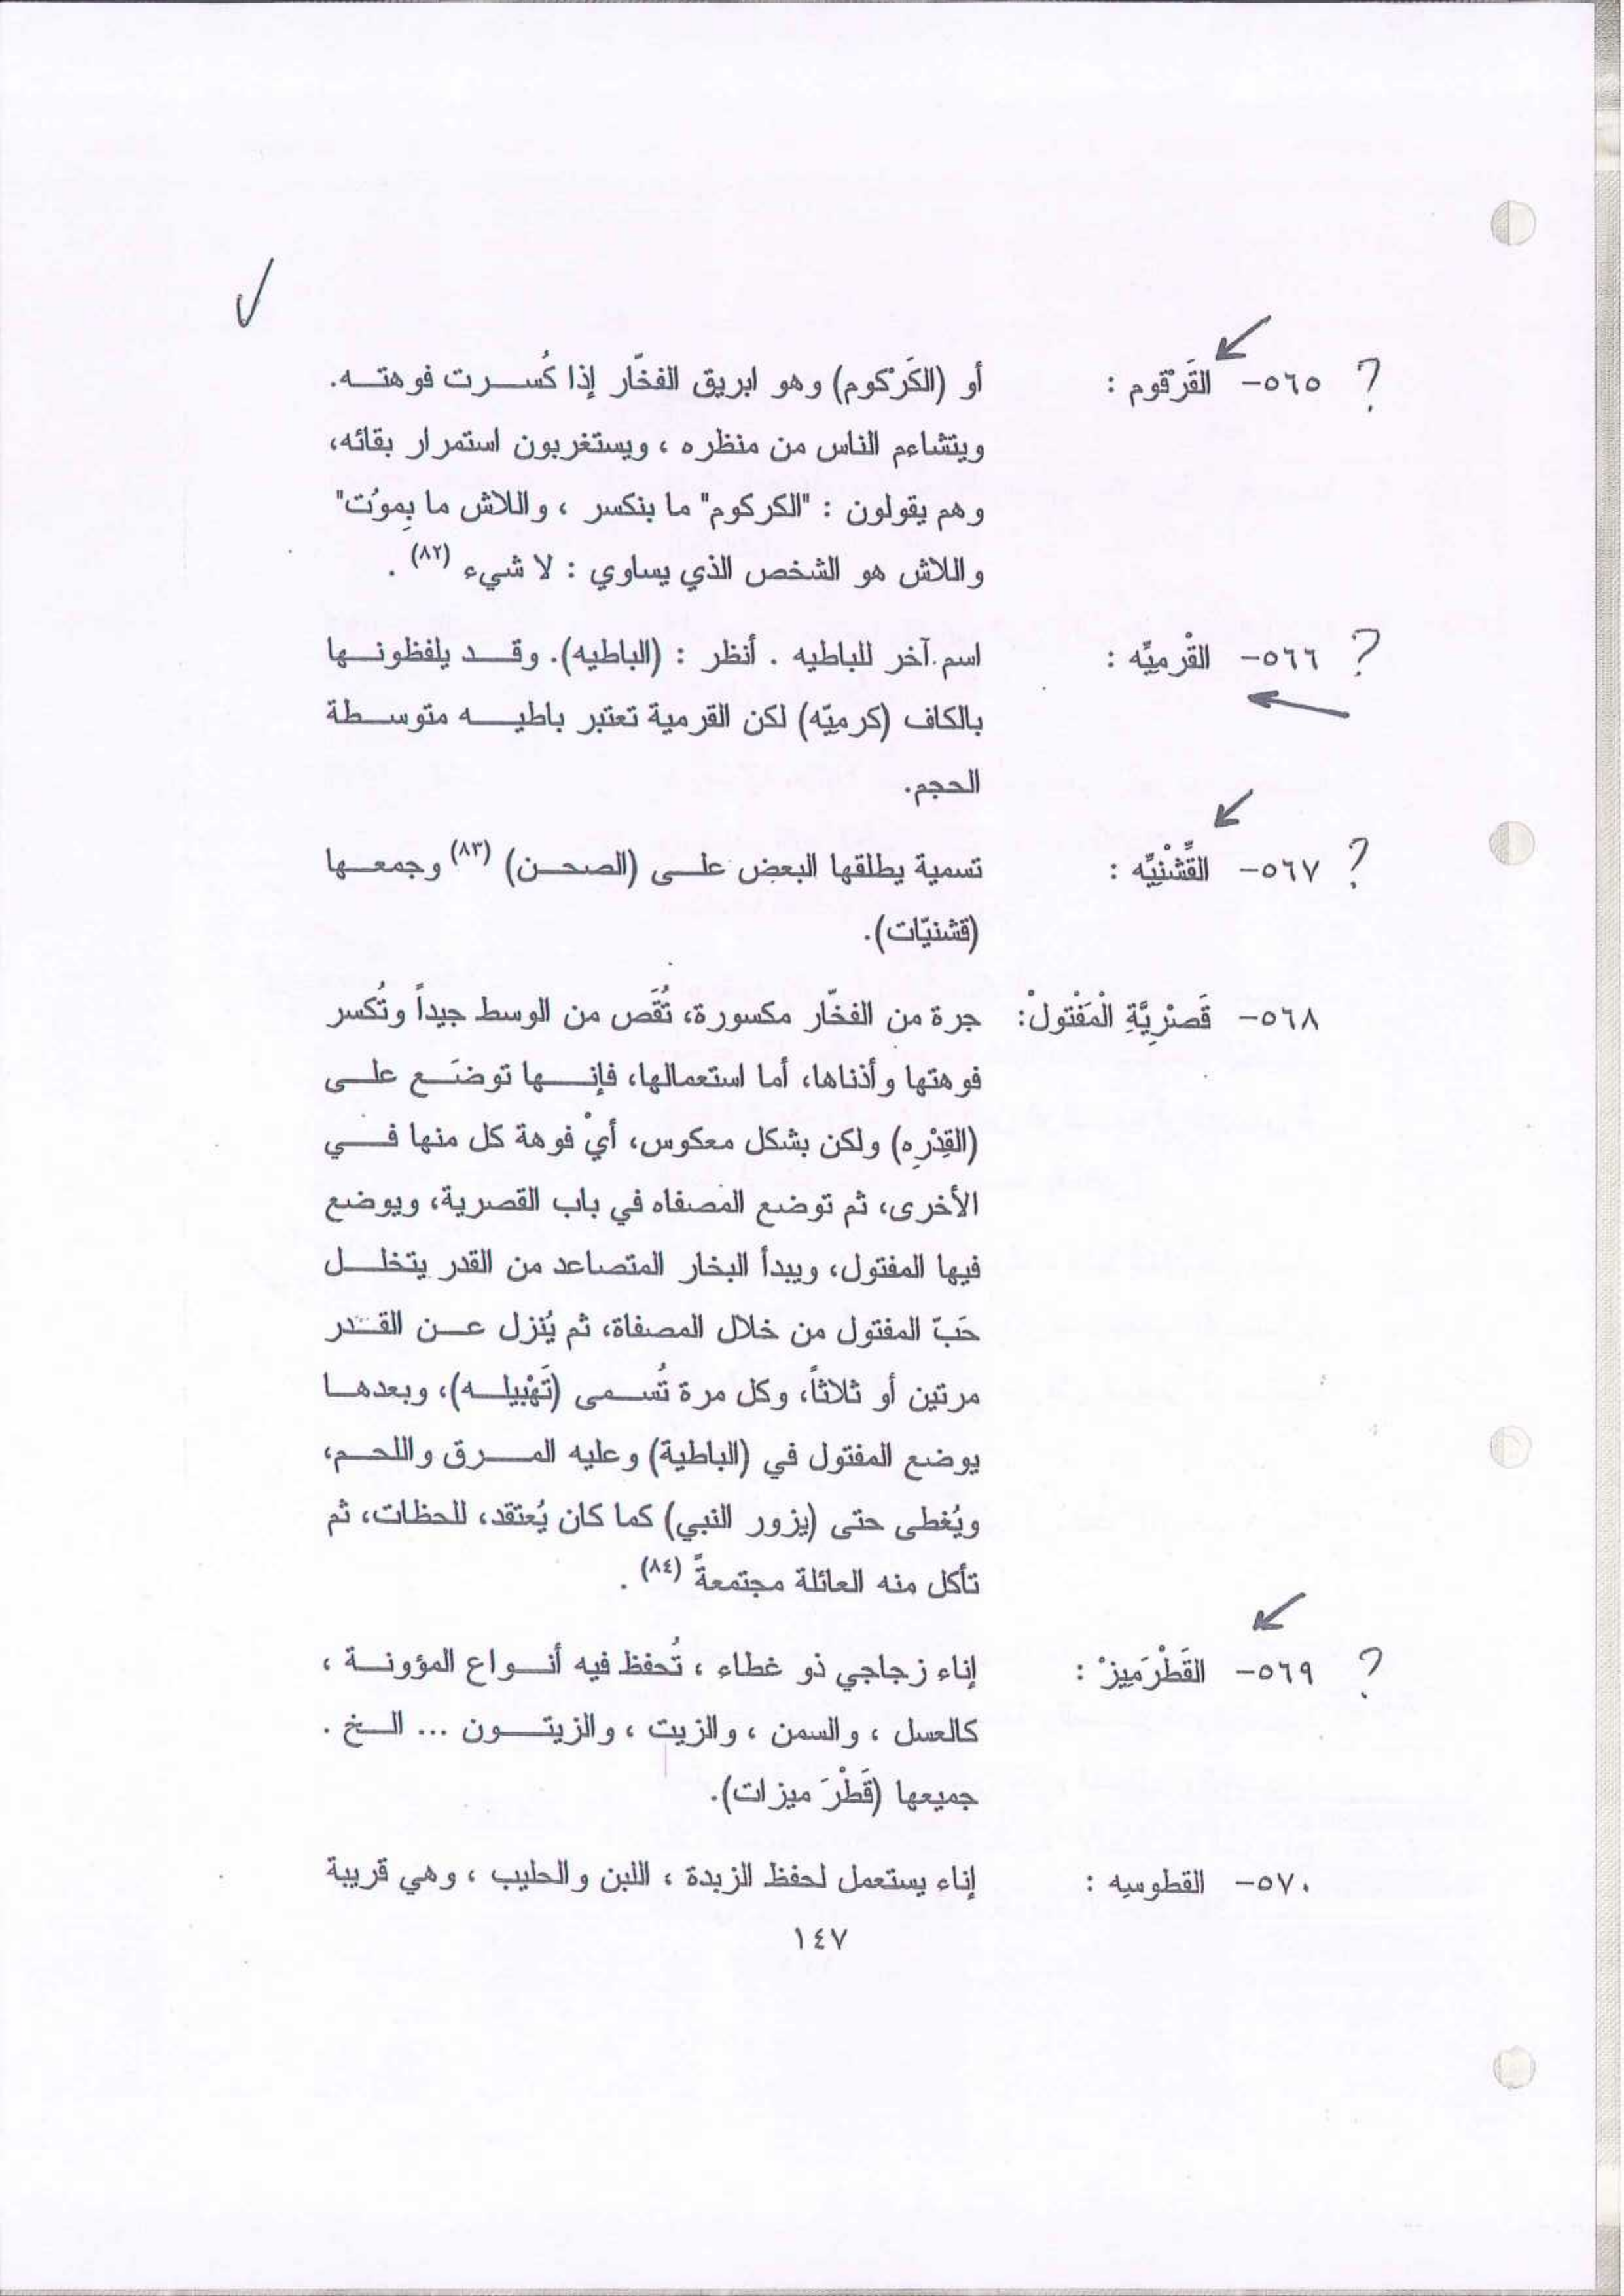 ؟ ٥٦٥- القَرْقوم : أو (الكَرْكوم) وهو ابريق الفخّار إذا كُسرت فوهته.
ويتشاءم الناس من منظره ، ويستغربون استمرار بقائه،
وهم يقولون : "الكركوم" ما بنكسر ، واللاش ما بِموُت"
واللاش هو الشخص الذي يساوي : لا شيء (٨٢) .
؟ ٥٦٦- القْرميِّه : اسم آخر للباطيه . أنظر : (الباطيه). وقد يلفظونها
بالكاف (كرميّه) لكن القرمية تعتبر باطيه متوسطة
الحجم.
؟ ٥٦٧- القِّشْنيِّه : تسمية يطلقها البعض على (الصحن) (٨٣) وجمعها
(قشنيّات).
٥٦٨- قَصْرِيَّةِ الْمَفْتولْ: جرة من الفخّار مكسورة، تُقَص من الوسط جيداً وتُكسر
فوهتها وأذناها، أما استعمالها، فإنها توضَع على
(القِدْرِه) ولكن بشكل معكوس، أيْ فوهة كل منها في
الأخرى، ثم توضع المصفاه في باب القصرية، ويوضع
فيها المفتول، ويبدأ البخار المتصاعد من القدر يتخلل
حَبّ المفتول من خلال المصفاة، ثم يُنزل عن القدر
مرتين أو ثلاثاً، وكل مرة تُسمى (تَهْبيله)، وبعدها
يوضع المفتول في (الباطية) وعليه المرق واللحم،
ويُغطى حتى (يزور النبي) كما كان يُعتقد، للحظات، ثم
تأكل منه العائلة مجتمعةً (٨٤) .
؟ ٥٦٩- القَطْرَميزْ : إناء زجاجي ذو غطاء ، تُحفظ فيه أنواع المؤونة ،
كالعسل ، والسمن ، والزيت ، والزيتون ... الخ .
جميعها (قَطْرَ ميزات).
٥٧٠- القطوسيه : إناء يستعمل لحفظ الزبدة ، اللبن والحليب ، وهي قريبة
١٤٧